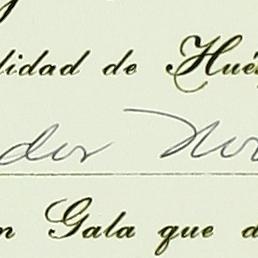 lidad de Hué
dor No
n Gala que d